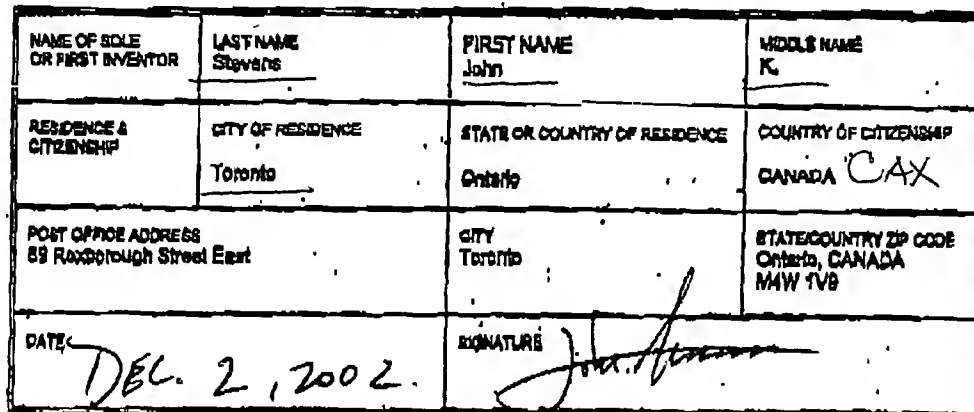 NAME OF SOLE
OR FIRST INVENTOR
LAST NAME
Stevens
FIRST NAME
John
MIDDLE NAME
K.
RESIDENCE &
CITIZENSHIP
CITY OF RESIDENCE
Toronto
STATE OR COUNTRY OF RESIDENCE
Ontario
COUNTRY OF CITIZENSHIP
CANADA CAX
POST OFFICE ADDRESS
89 Roxborough Street East
CITY
Toronto
STATE/COUNTRY ZIP CODE
Ontario, CANADA
M4W 1V9
DATE
DEC. 2, 2002.
SIGNATURE